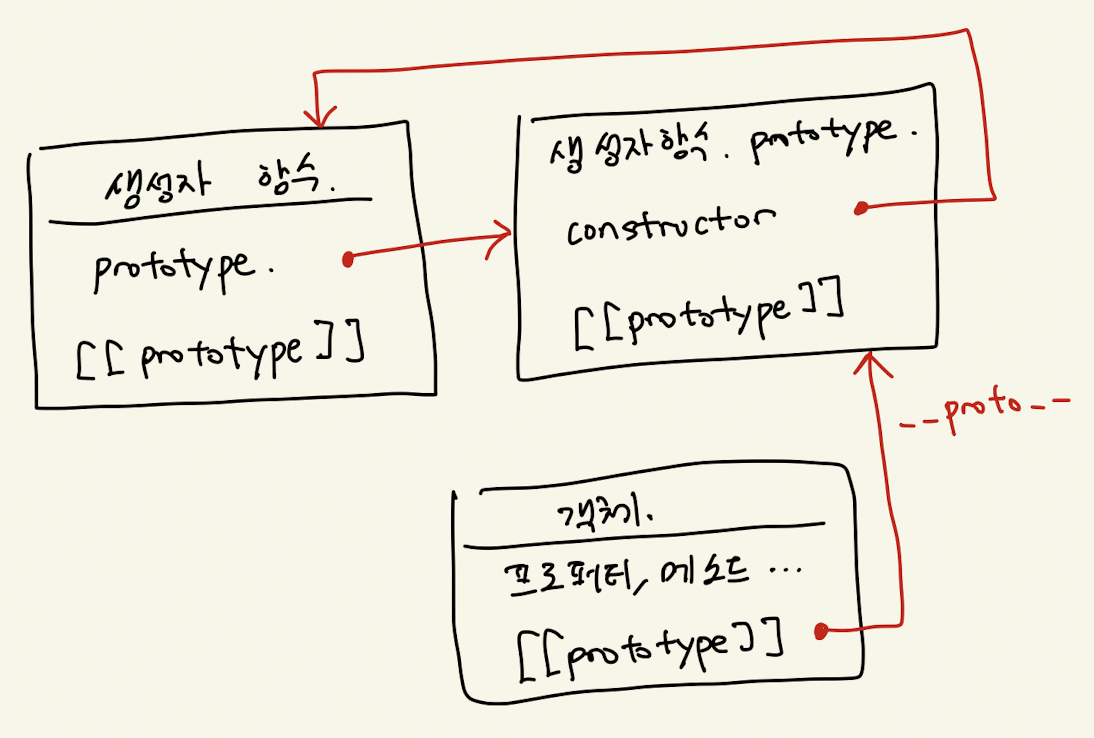 생성자 함수.
prototype.
[[prototype]]
생성자함수. prototype.
constructor
[[prototype]]
__proto__
객체.
프로퍼티, 메소드 ...
[[prototype]]